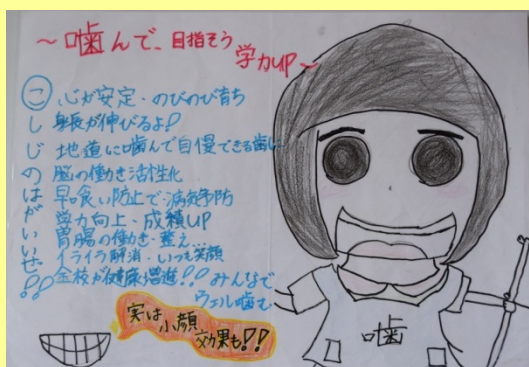 ～噛んで、目指そう
学力UP～
こ 心が安定・のびのび育ち
し 身長が伸びるよ!!
じ 地道に噛んで自慢できる歯に
の 脳の働き活性化
は 早食い防止で病気予防
が 学力向上・成績UP
い 胃腸の働き・整え、
い イライラ解消・いつも笑顔
せ 全校が健康増進!!
!! みんなで
ウェル噛む
実は小顔
効果も!!
噛